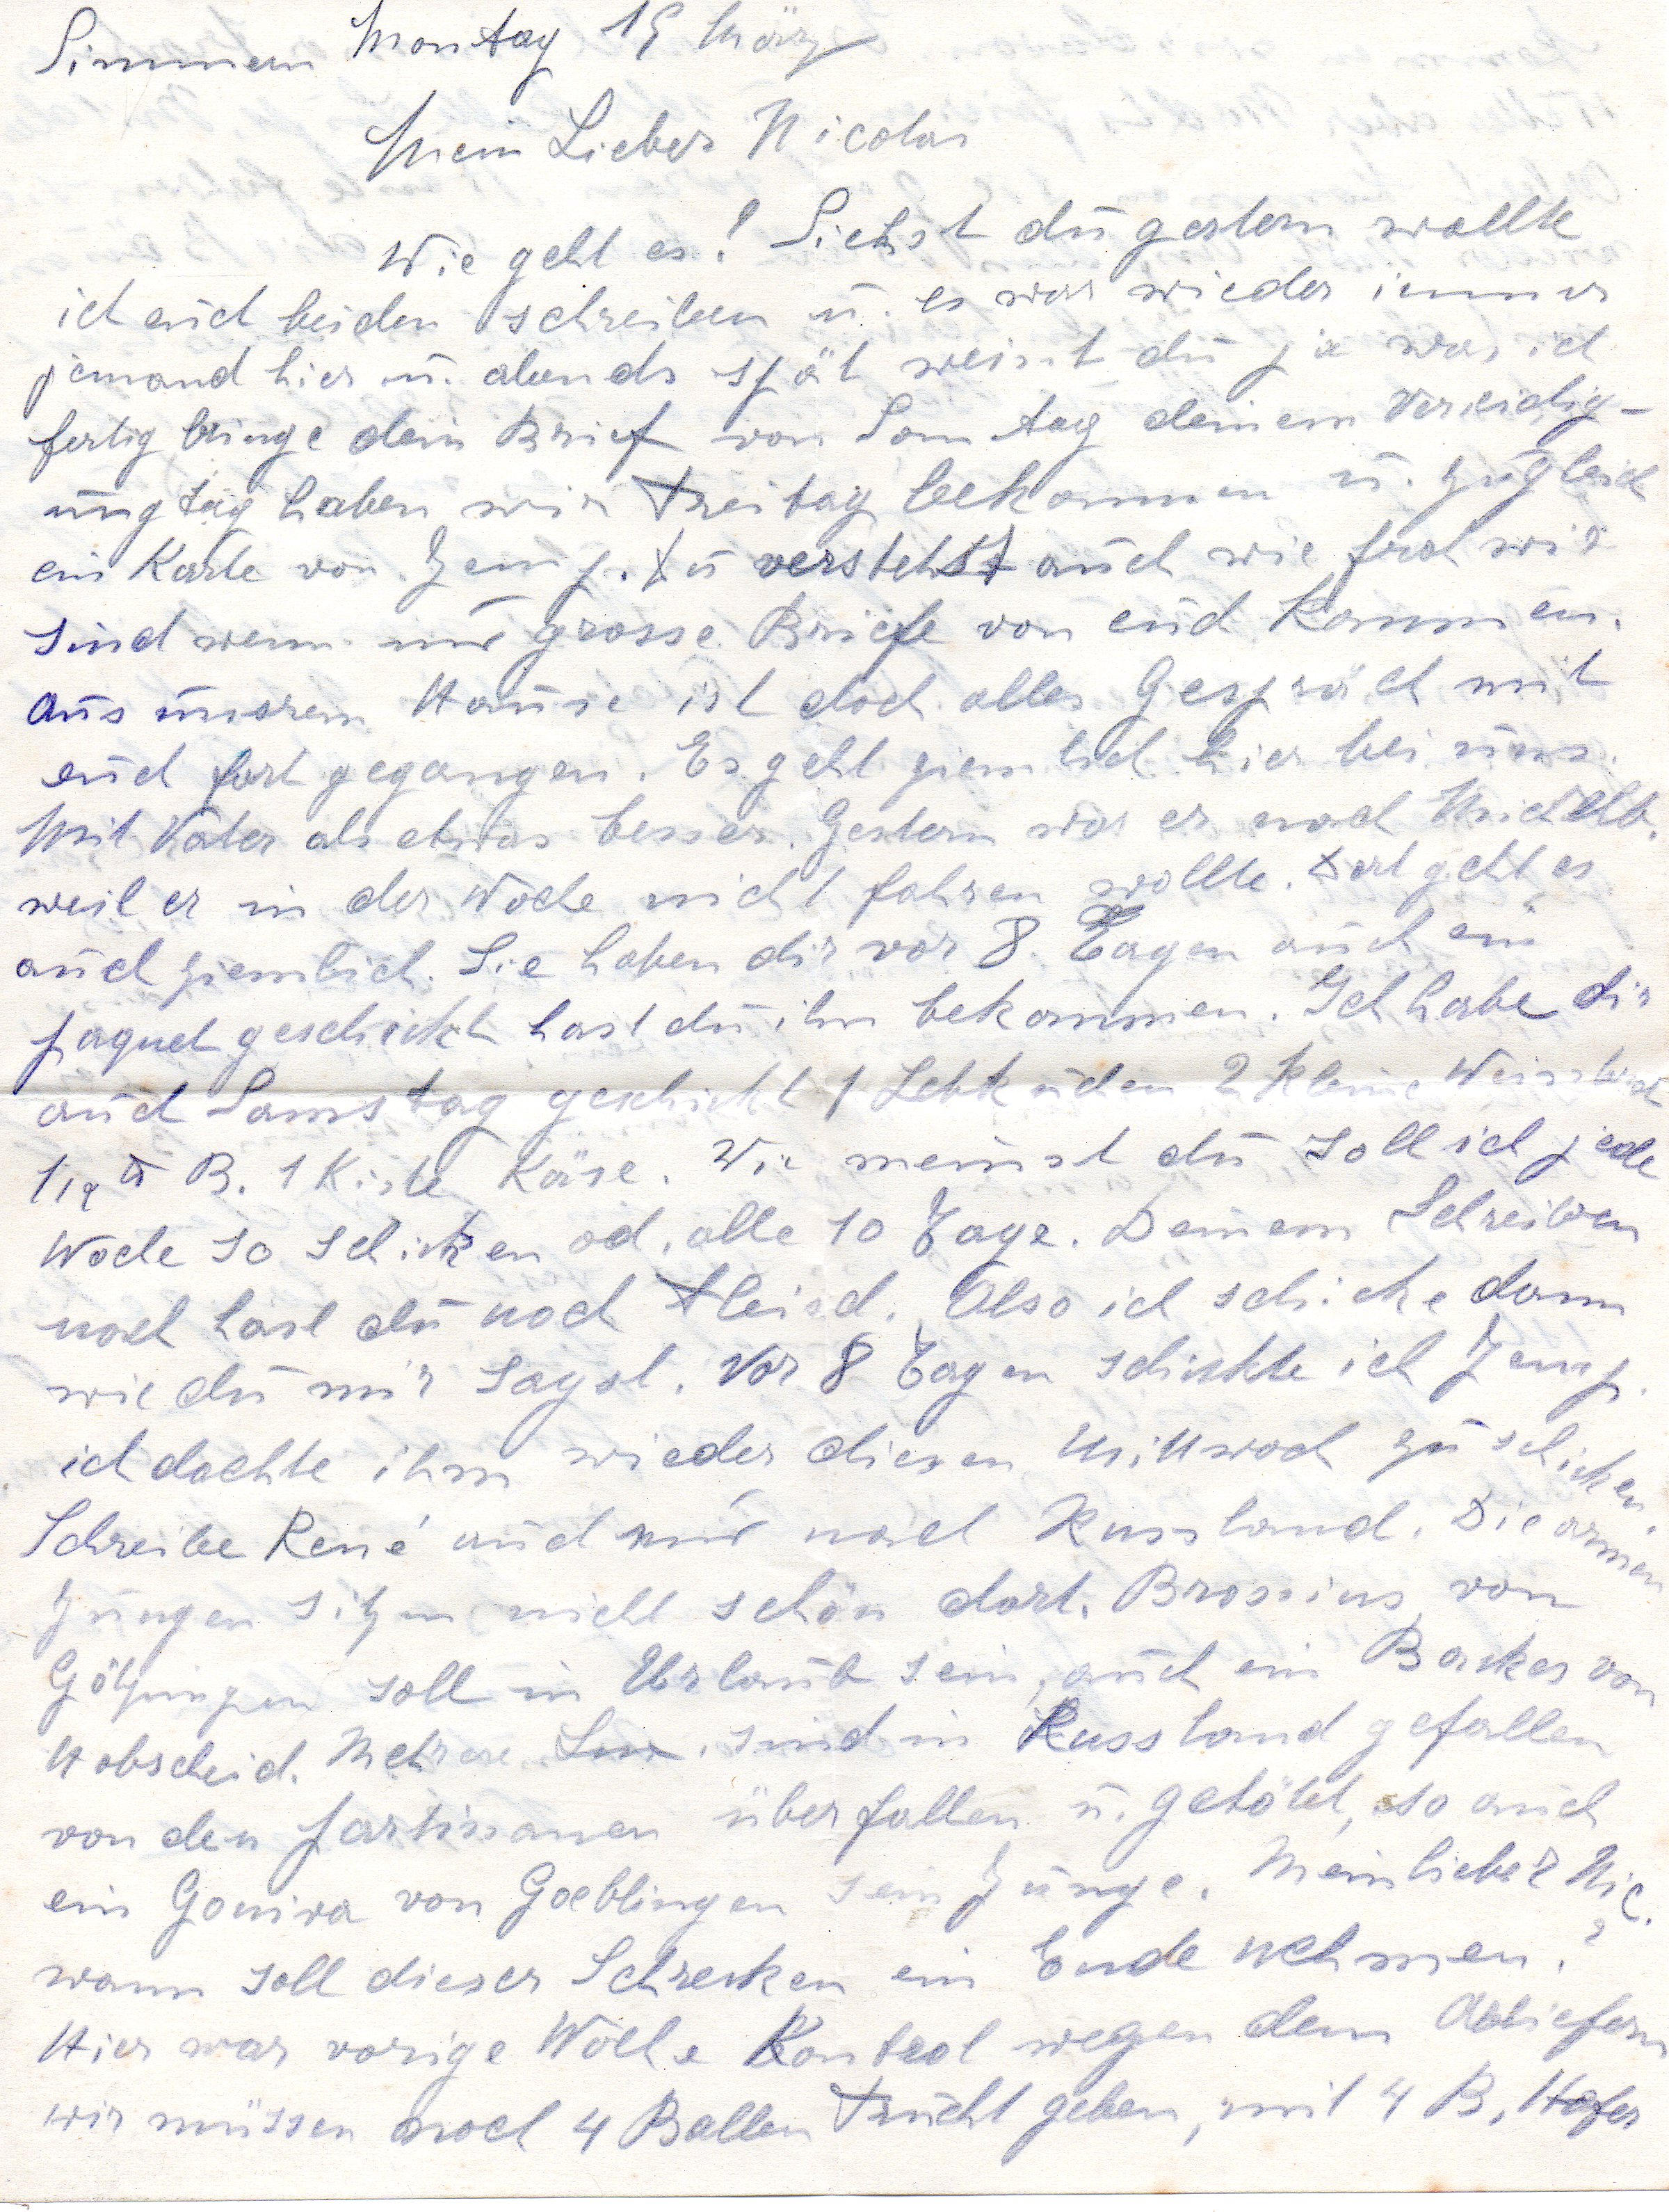 Simmern Montag 15 März
Mein Lieber Nicolas
Wie geht es? Siehst du gestern wollte
ich euch beiden schreiben u. es war wieder immer
jemand hier u. abends spät weisst du ja was ich
fertig bringe dein Brief von Sonntag deinem Vereidig-
ungtag haben wir Freitag bekommen u. zugleich
ein Karte von Jemp. Du verstehst auch wie froh wir
sind wenn nur grosse Briefe von euch kommen.
Aus unsrem Hause ist doch alles Gespräch mit
euch fortgegangen. Es geht ziemlich hier bei uns.
Mit Vater als etwas besser. Gestern war er nach
weil er in der Woche nicht fahren wollte. Dort geht es
auch ziemlich. Sie haben dir vor 8 Tagen auch ein
paquet geschickt hast du ihn bekommen. Ich habe dir
auch Samstag geschickt 1 Lebkuchen 2 kleine
B. 1 Kiste Käse. Wie meinst du soll ich jede
Woche so schicken od. alle 10 Tage. Deinem Schreiben
nach hast du noch Fleisch. Also ich schicke dann
wie du mir sagst. Vor 8 Tagen schickte ich Jemp.
ich dachte ihm wieder diesen Mittwoch zu schicken.
Schreibe René auch nur nach Russland. Die armen
Jungen sitzen nicht schön dort. Brosius von
Götzingen soll in Urlaub sein, auch ein Backes von
Hobscheid. Mehrere sind in Russland gefallen
von den partisanen überfallen u. getötet, so auch
ein Goniva von Goeblingen sein Junge. Mein lieber Nic.
wann soll dieser Schrecken ein Ende nehmen?
Hier war vorige Woche Kontrol wegen dem Abliefern
wir müssen noch 4 Ballen Frucht geben, mit 4 B. Hafer